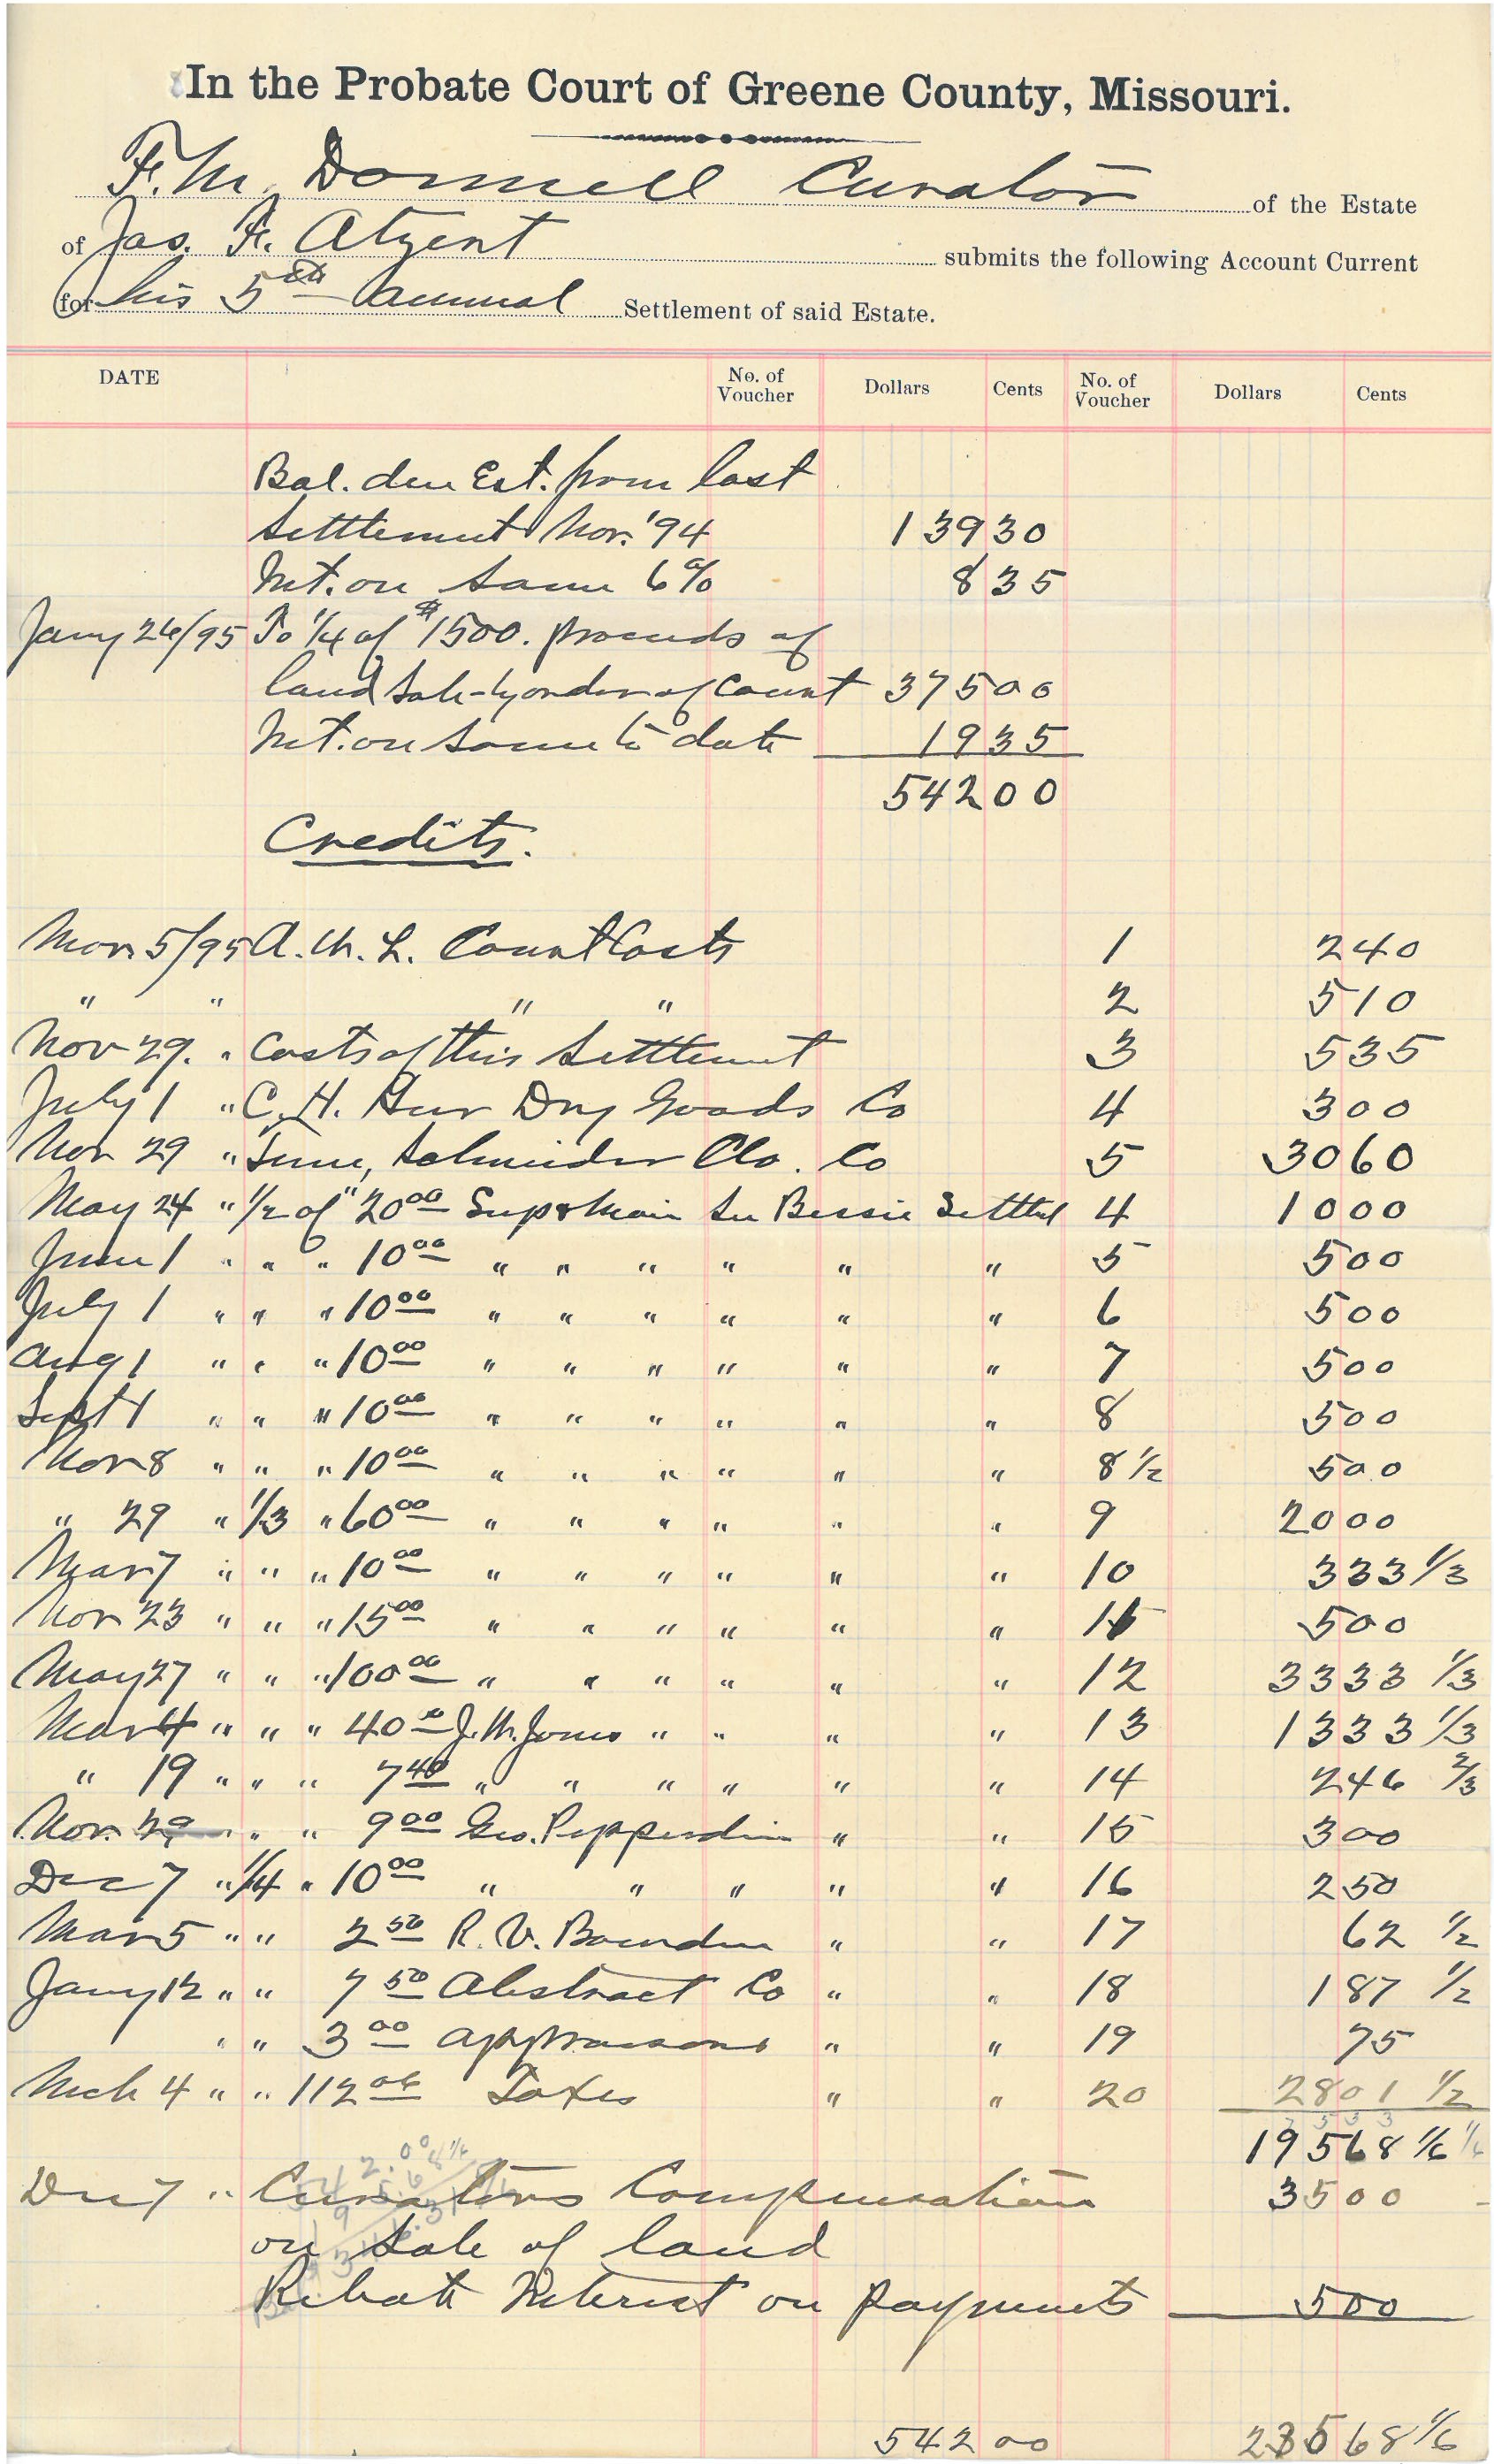 In the Probate Court of Greene County, Missouri.
F. M. Donnell Curator of the Estate
of Jas. F. Atzent submits the following Account Current
for his 5th Annual Settlement of said Estate.
DATE No. of Voucher Dollars Cents No. of Voucher Dollars Cents
Bal. due Est. from last
Settlement Nov. '94 139 30
Int. on same 6% 8 35
Jany 26/95 To 1/4 of $1500. proceeds of
land sale by order of Court 375 00
Int. on same to date 19 35
542 00
Credits.
Mar 5/95 A. M. L. Court Costs 1 2 40
" " " " 2 5 10
Nov 29. " Costs of this Settlement 3 5 35
July 1 " C. H. Heer Dry Goods Co 4 3 00
Nov 29 " Schneider Clo. Co 5 30 60
May 24 " 1/2 of " 20 00 Sup & Main See Bessie Settlet 4 10 00
June 1 " " " 10 00 " " " " " " 5 5 00
July 1 " " " 10 00 " " " " " " 6 5 00
Aug 1 " " " 10 00 " " " " " " 7 5 00
Sept 1 " " " 10 00 " " " " " " 8 5 00
Nov 8 " " " 10 00 " " " " " " 8 1/2 5 00
" 29 " 1/3 " 60 00 " " " " " " 9 20 00
Mar 7 " " " 10 00 " " " " " " 10 3 33 1/3
Nov 23 " " " 15 00 " " " " " " 11 5 00
May 27 " " " 100 00 " " " " " " 12 33 33 1/3
Mar 4 " " " 40 00 J. M. Jones " " " " 13 13 33 1/3
" 19 " " " 7 40 " " " " " " 14 2 46 2/3
Nov. 29 " " " 9 00 Geo. Pepperdine " " 15 3 00
Dec 7 " 1/4 " 10 00 " " " " " 16 2 50
Mar 5 " " 2 50 R. V. " " 17 62 1/2
Jany 12 " " 7 50 Abstract Co " " 18 1 87 1/2
" " 3 00 appraisers " " 19 75
Mch 4 " " 112 06 Taxes " " 20 28 01 1/2
195 68 1/6
Dec 7 " Curators Compensation 35 00
on sale of land
Rebate Interest on payments 5 00
542 00 235 68 1/6